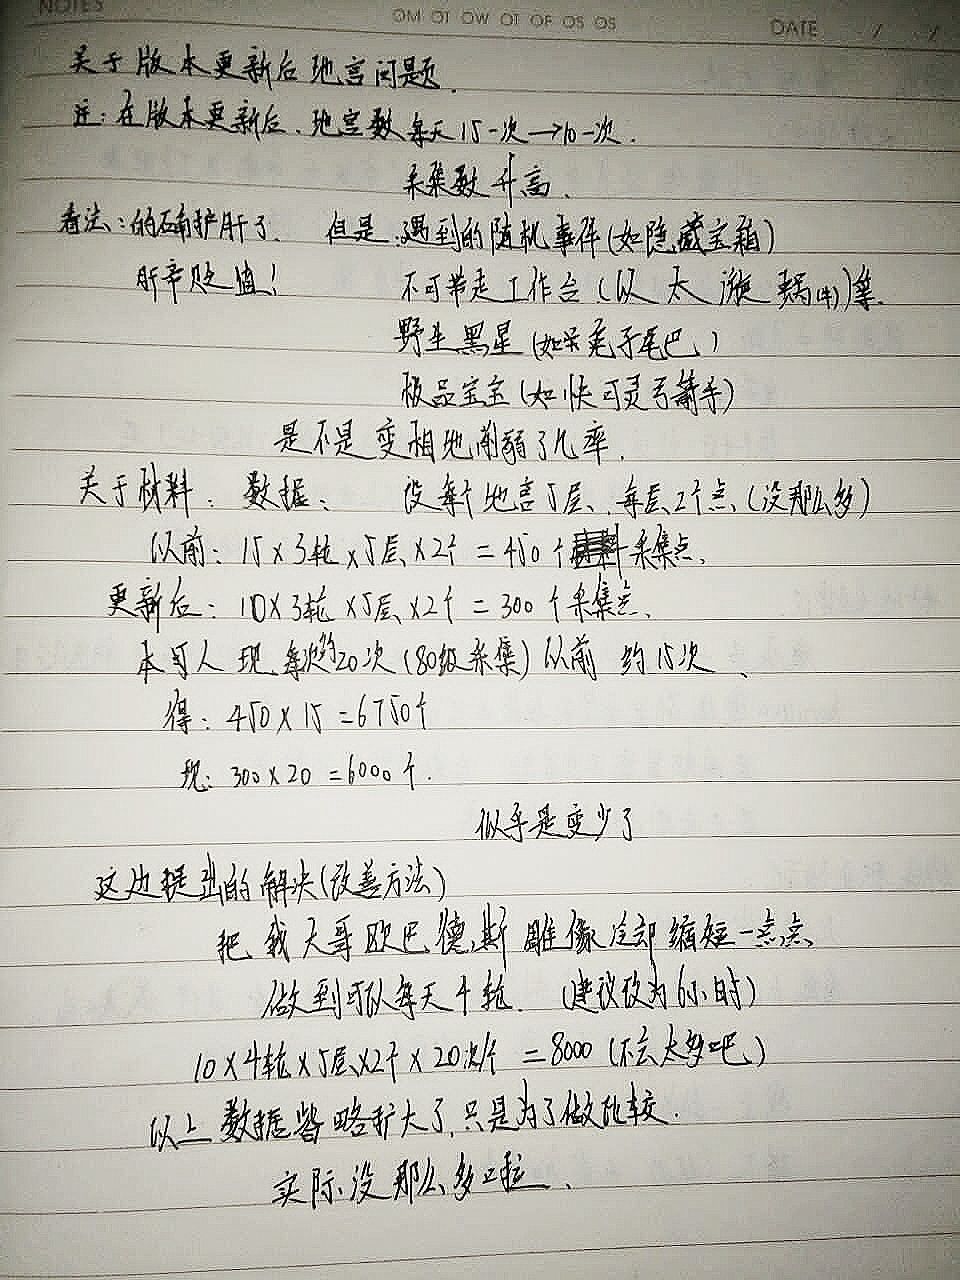 NOTES
OM OT OW OT OF OS OS
DATE / /
关于版本更新后地宫问题.
注:在版本更新后.地宫数每天15一次→10一次.
采集数升高.
看法:的确护肝了. 但是:遇到的随机事件(如隐藏宝箱)
肝帝贬值! 不可带走工作台(以太漩涡(牛))等.
野生黑星(如呆毛子尾巴)
极品宝宝(如快可灵弓箭手)
是不是变相地削弱了几率.
关于材料: 数据: 设每个地宫5层、每层2个点、(没那么多)
以前: 15×3轮×5层×2个=450个采集点.
更新后: 10×3轮×5层×2个=300个采集点.
本可人现每次约20次(80级采集)以前约15次、
得: 450×15=6750个
现: 300×20=6000个.
似乎是变少了
这边提出的解决(改善方法)
把我大哥欧巴德斯雕像冷却缩短一点点、
做到可以每天4轮. (建议改为6小时)
10×4轮×5层×2个×20次/个=8000(不会太多吧)
以上数据皆略扩大了,只是为了做比较.
实际没那么多啦、